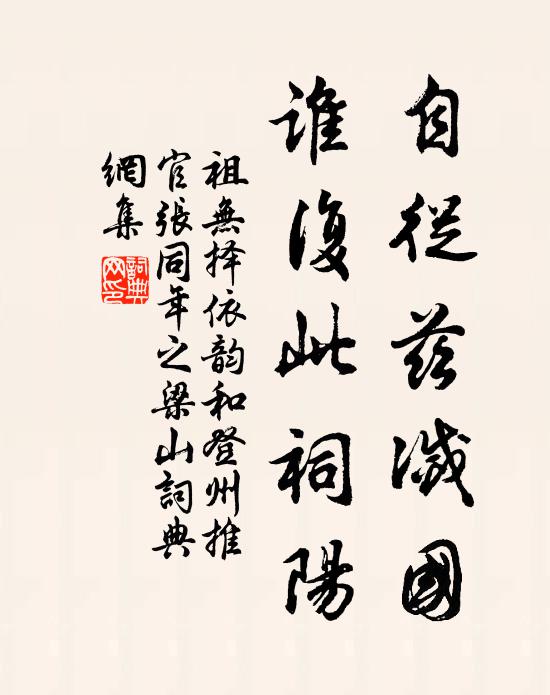 自從茲滅國
誰復此祠陽
祖無择依韵和登州推
官張同年之梁山詞典
網集
詞典網印